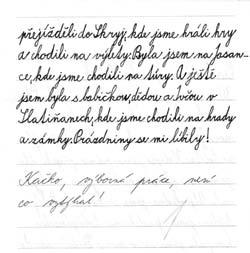 přejížděli do Skryj, kde jsme hráli hry
a chodili na výlety. Byla jsem na Jasan-
ce, kde jsme chodili na túry. A ještě
jsem byla s babičkou, dědou a Ivčou v
Slatiňanech, kde jsme chodili na hrady
a zámky. Prázdniny se mi líbily!
Kačko, výborná práce, není
co vytýkat!